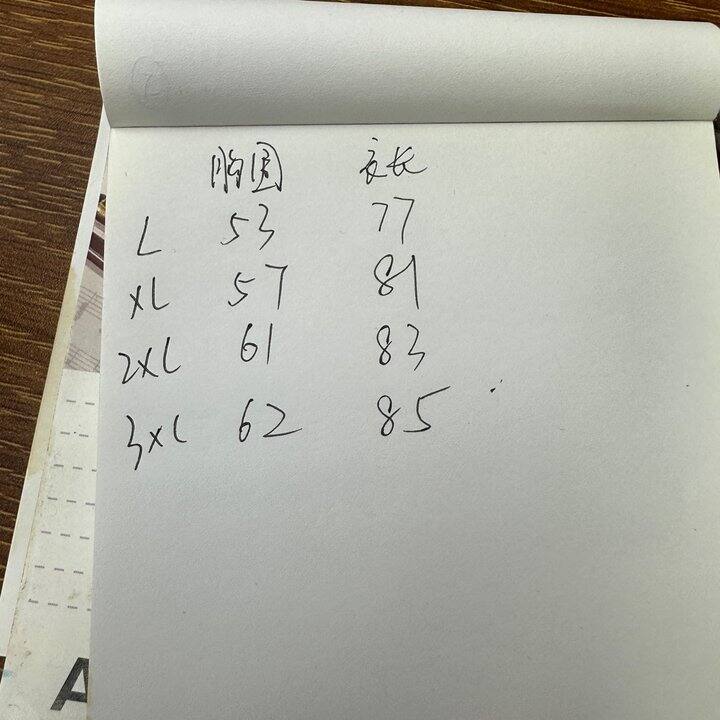 胸围 衣长
L 53 77
XL 57 81
2XL 61 83
3XL 62 85
A